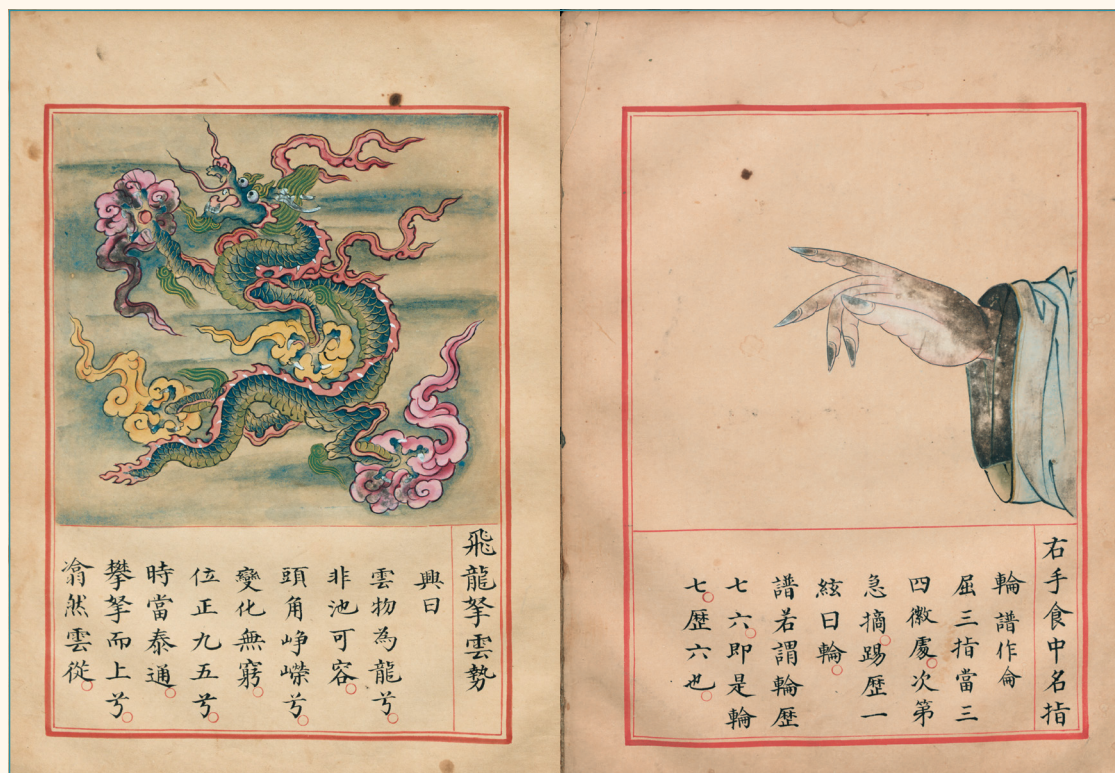 右手食中名指
輪 譜作侖
屈三指當三
四徽處。次第
急摘。踢歷一
絃曰輪。
譜若謂輪歷
七六。即是輪
七。歷六也。
飛龍拏雲勢
興曰
雲物為龍兮。
非池可容。
頭角崢嶸兮。
變化無窮。
位正九五兮。
時當泰通。
攀拏而上兮。
翕然雲從。